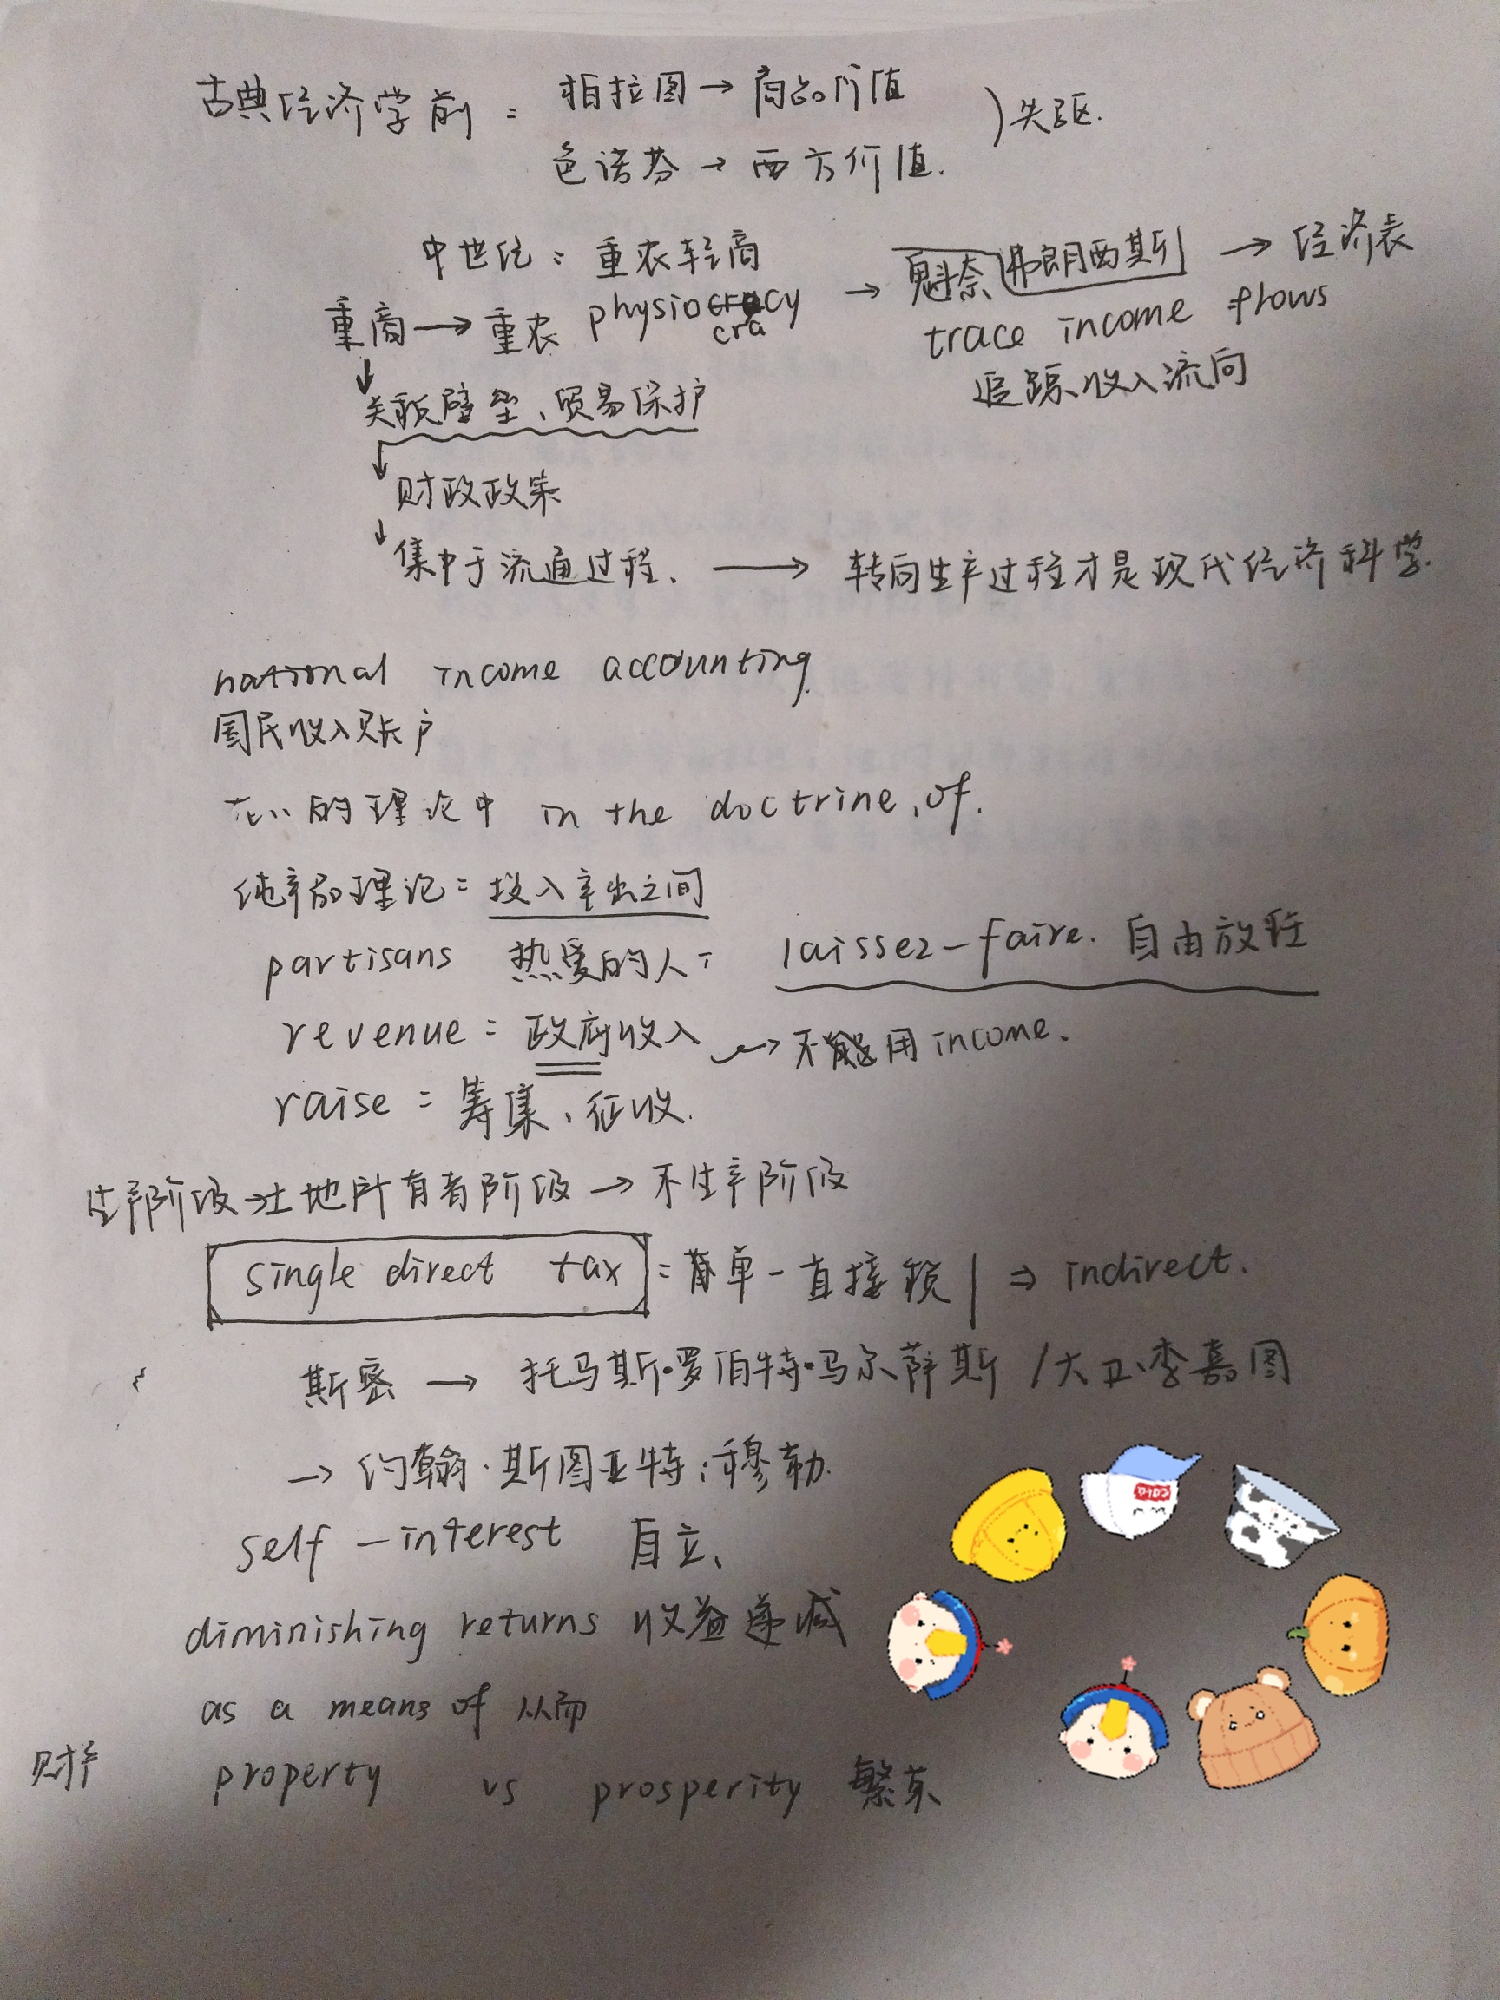 古典经济学前: 柏拉图→商品价值
色诺芬→西方价值. )先驱.
中世纪: 重农轻商
重商→重农 physiocracy cra → 魁奈 弗朗西斯 → 经济表
trace income flows
追踪收入流向
↓关税壁垒、贸易保护
↓财政政策
↓集中于流通过程、→ 转向生产过程才是现代经济科学.
national income accounting.
国民收入账户
在…的理论中 in the doctrine of.
纯产品理论=投入产出之间
partisans 热爱的人: laissez-faire. 自由放任
revenue=政府收入 → 不能用income.
raise=筹集、征收.
生产阶级→土地所有者阶级→不生产阶级
single direct tax=单一直接税 | ⇒ indirect.
斯密→托马斯·罗伯特·马尔萨斯/大卫·李嘉图
→约翰·斯图亚特·穆勒.
self-interest 自立、
diminishing returns 收益递减
as a means of 从而
财产 property vs prosperity 繁荣
DIDI